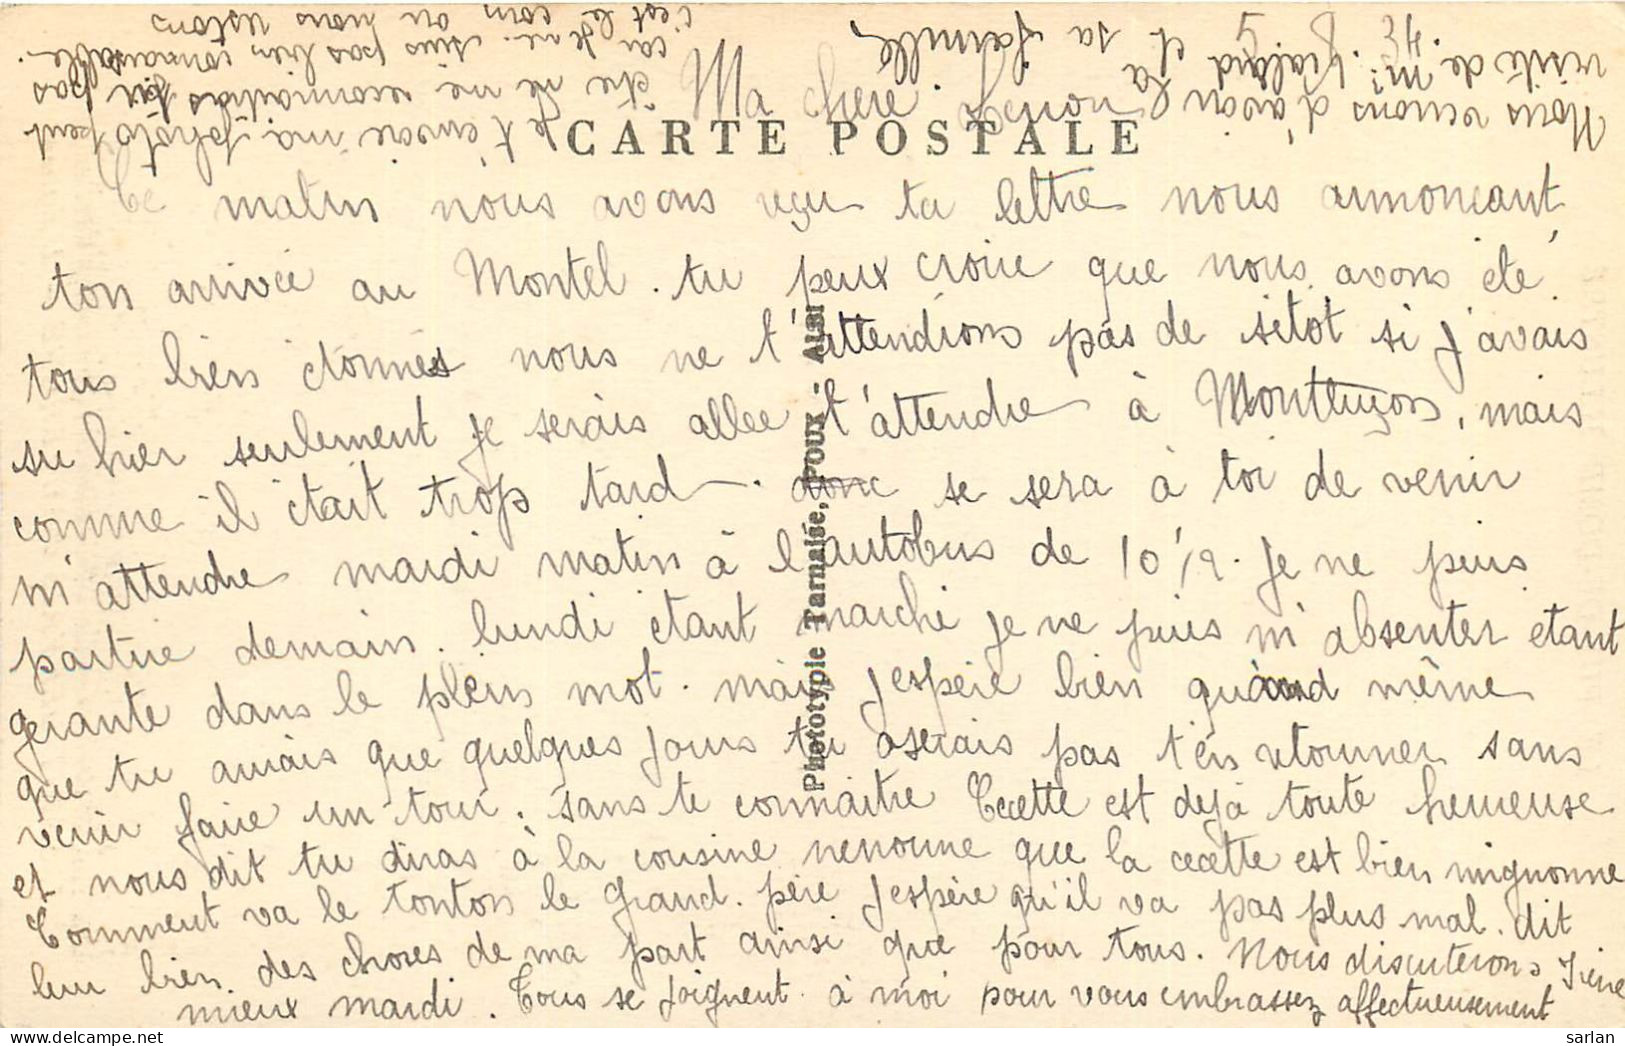 Ma chère Nenon
CARTE POSTALE
Ce matin nous avons reçu ta lettre nous annonçant
ton arrivée au Montel. tu peux croire que nous avons été
tous bien étonnés nous ne t'attendions pas de sitot si j'avais
su hier seulement je serais allée t'attendre à Montluçon, mais
comme il était trop tard. donc se sera à toi de venir
m'attendre mardi matin à l'autobus de 10 ½. Je ne puis
partir demain. lundi étant marché je ne puis m'absenter etant
gerante dans le plein mot. mais j'espère bien quand même
que tu aurais que quelques jours tu oserais pas t'en retourner sans
venir faire un tour. sans te connaitre Cecette est dejà toute heureuse
et nous dit tu diras à la cousine nenonne que la cecette est bien mignonne
Comment va le tonton le Grand-père j'espère qu'il va pas plus mal. dit
leur bien des choses de ma part ainsi que pour tous. Nous discuterons
mieux mardi. Tous se joignent à moi pour vous embrassez affectueusement
Irène
Nous venons d'avoir la
visite de Mr. et sa famille
Je t'envoie ma photo peut
être ne me reconnaitras tu pas
car je ne suis pas bien reconnaissable.
c'est le coin ou nous restons
Phototypie Tarnaise, POUX - ALBI
sarlan